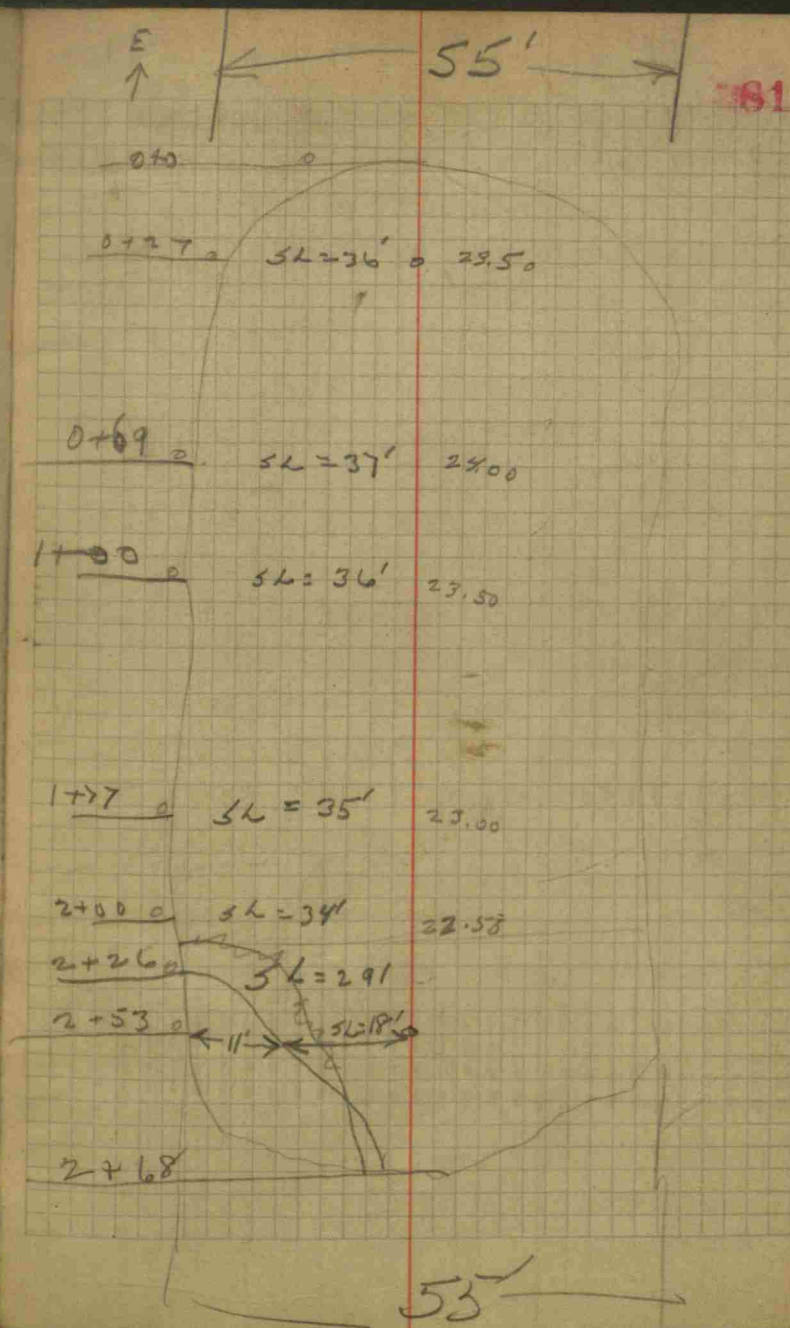 E
55'
81
0+0
0+27 SL=36' 23.50
0+69 SL=37' 24.00
1+00 SL=36' 23.50
1+77 SL=35' 23.00
2+00 SL=34' 22.58
2+26 SL=29'
2+53 11' SL=18'
2+68
55'